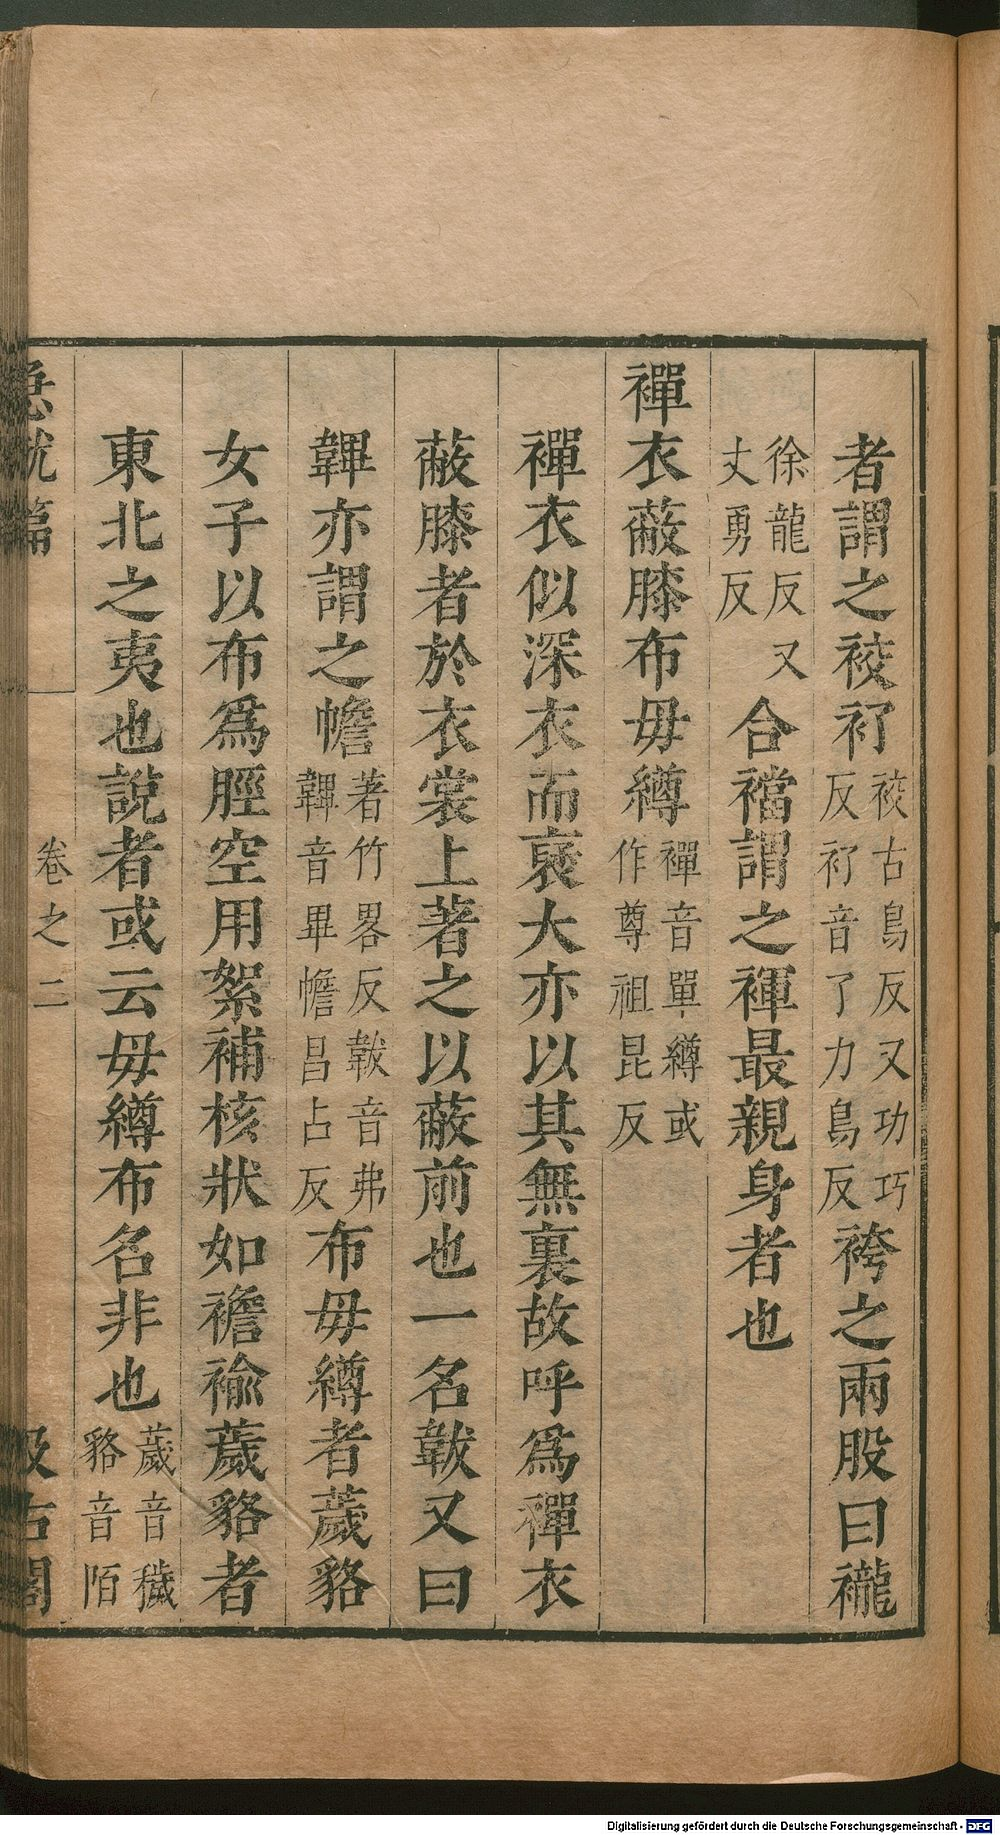 者謂之袨衦袨古鳥反又功巧反衦音了力鳥反袴之兩股曰襱
徐龍反又丈勇反合襠謂之褌最親身者也
襌衣蔽膝布毋繜襌音單繜或作尊祖昆反
襌衣似深衣而褎大亦以其無裏故呼爲襌衣
蔽膝者於衣裳上著之以蔽前也一名韍又曰
韠亦謂之幨著竹畧反韍音弗韠音畢幨昌占反布毋繜者薉貉
女子以布爲脛空用絮補核狀如襜褕薉貉者
東北之夷也說者或云毋繜布名非也薉音穢貉音陌
急就篇 卷之二 汲古閣
Digitalisierung gefördert durch die Deutsche Forschungsgemeinschaft - DFG